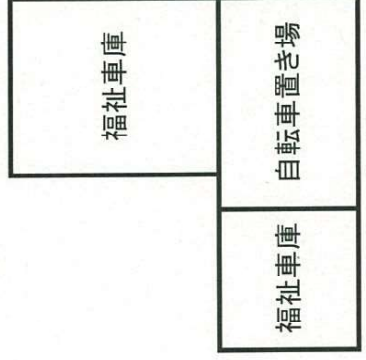 福祉車庫
自転車置き場
福祉車庫